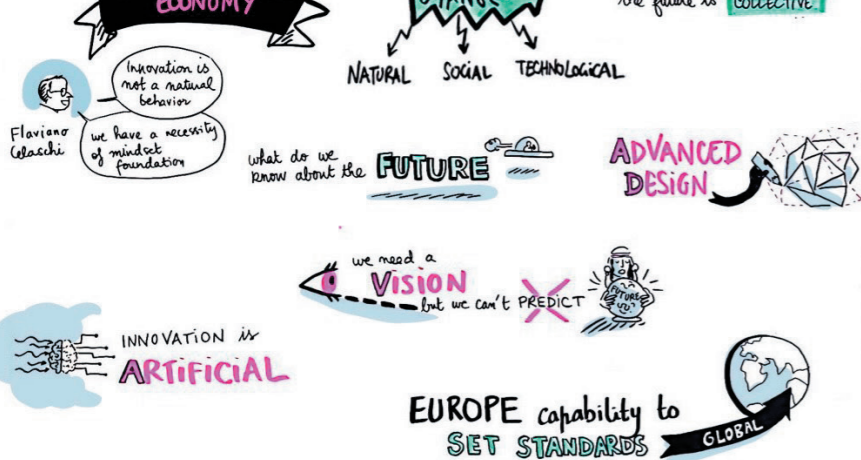 ECONOMY
CHANGE
the future is COLLECTIVE
NATURAL SOCIAL TECHNOLOGICAL
Innovation is
not a natural
behavior
Flaviano
Celaschi
we have a necessity
of mindset
foundation
what do we
know about the FUTURE
ADVANCED
DESIGN
we need a
VISION
but we can't PREDICT
FUTURE
INNOVATION is
ARTiFiCiAL
EUROPE capability to
SET STANDARDS
GLOBAL